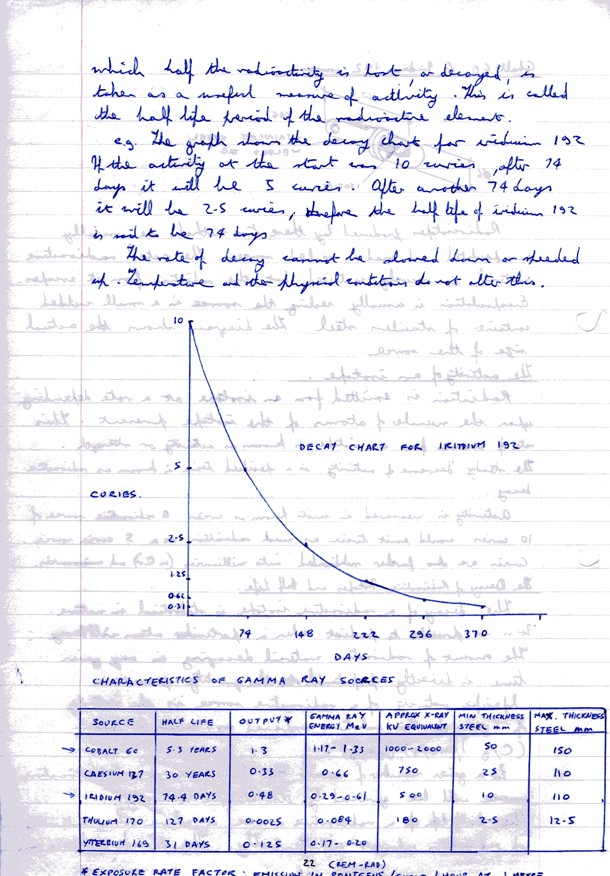 which half the radioactivity is lost, or decayed, is
taken as a useful measure of activity. This is called
the half life period of the radioactive element.
e.g. The graph shows the decay chart for iridium 192
If the activity at the start was 10 curies, after 74
days it will be 5 curies. After another 74 days
it will be 2.5 curies, therefore the half life of iridium 192
is said to be 74 days
The rate of decay cannot be slowed down or speeded
up. Temperature and other physical conditions do not alter this.
10
DECAY CHART FOR IRIDIUM 192
5
CURIES.
2.5
1.25
0.62
0.31
74 148 222 296 370
DAYS
CHARACTERISTICS OF GAMMA RAY SOURCES
SOURCE HALF LIFE OUTPUT * GAMMA RAY ENERGY MeV APPROX X-RAY KV EQUIVALENT MIN THICKNESS STEEL mm MAX. THICKNESS STEEL mm
→ COBALT 60 5.3 YEARS 1.3 1.17 - 1.33 1000-2000 50 150
CAESIUM 137 30 YEARS 0.33 0.66 750 25 110
→ IRIDIUM 192 74.4 DAYS 0.48 0.29-0.61 500 10 110
THULIUM 170 127 DAYS 0.0025 0.084 180 2.5 12.5
YTTERBIUM 169 31 DAYS 0.125 0.17 - 0.20
22 (REM-RAD)
* EXPOSURE RATE FACTOR: EMISSION IN RONTGENS / CURIE / HOUR AT 1 METRE